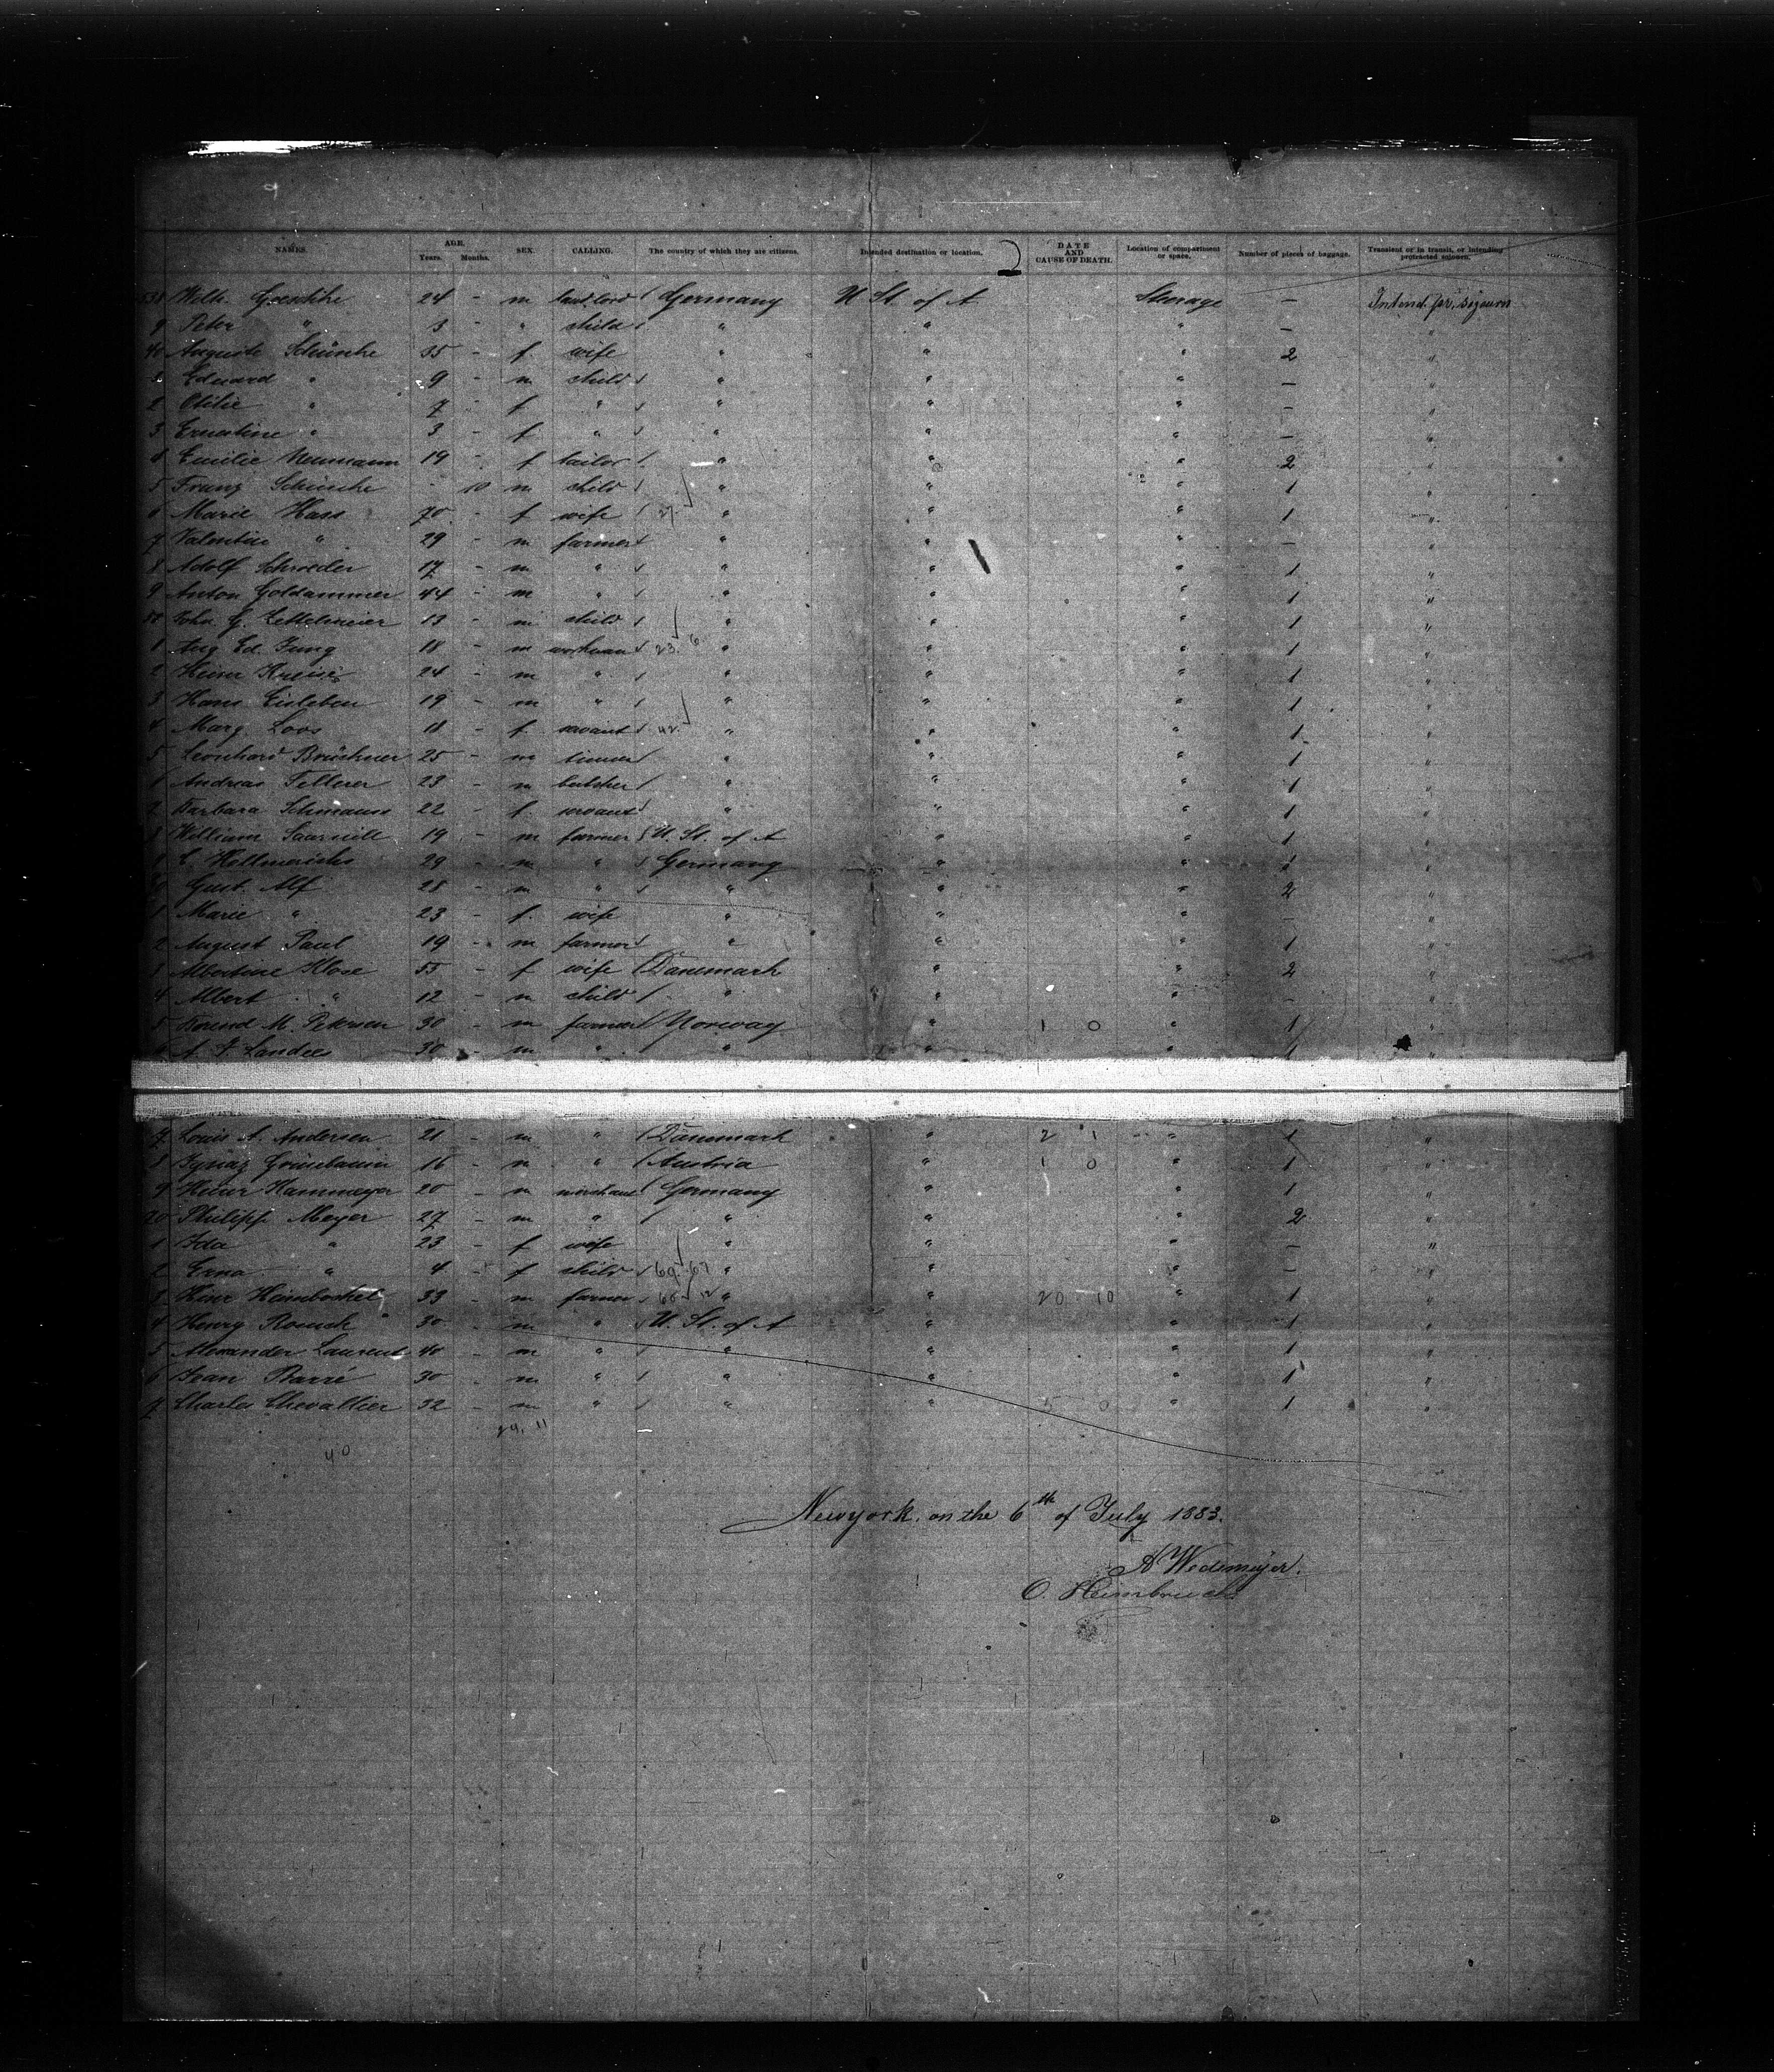 NAMES. AGE. Years. Months. SEX. CALLING. The country of which they are citizens. Intended destination or location. 2 DATE AND CAUSE OF DEATH. Location of compartment or space. Number of pieces of baggage. Transient or in transit, or intending protracted sojourn.
24 - m landlord Germany U St. of A Steerage - Intend. pr. sojourn
9 Peter " 3 - " child " " " - "
40 Auguste 35 - f. wife " " " 2 "
1 Eduard " 9 - m child " " " - "
2 Otilie " 7 - f " " " " - "
3 Ernestine " 3 - f " " " " - "
4 Emilie Neumann 19 - f tailor " " " 2 "
5 Franz - 10 m child " " " 1 "
6 Marie Hass 70 - f wife 27. " " " 1 "
7 Valentin " 29 - m farmer " " " - "
8 Adolf Schroeder 17 - m " " " " 1 "
9 Anton Goldammer 44 - m " " " " 1 "
50 John G. Zettelmeier 13 - m child " " " 1 "
1 Aug Ed. Jung 18 - m workman 23. 6 " " " 1 "
2 Heinr 24 - m " " " " 1 "
3 Hans Eisleben 19 - m " " " " 1 "
4 Marg. Loos 18 - f. servant 42 " " " 1 "
5 Leonhard Brückner 25 - m " " " 1 "
6 Andreas Fellerer 23 - m butcher " " " 1 "
7 Barbara Schmauss 22 - f. servant " " " 1 "
8 William 19 - m farmer U. St. of A " " 1 "
9 29 - m " Germany " " 1 "
60 Gust. Alf 28 - m " " " " 2 "
1 Marie " 23 - f. wife " " " - "
2 August Paul 19 - m farmer " " " 1 "
3 Albertine Klose 55 - f wife Danemark " " 2 "
4 Albert " 12 - m child " " " - "
5 M. Petersen 30 - m farmer Norway " 1 0 " 1 "
6 30 - m " " " " 1 "
7 Louis A. Andersen 21 - m " Danemark " 2 1 " 1 "
8 Ignaz Grünebaum 16 - m " Austria " 1 0 " 1 "
9 Heinr Hammeyer 20 - m merchant Germany " " 1 "
70 Philipp Meyer 27 - m " " " " 2 "
1 Ida " 23 - f wife " " " - "
2 Erna " 4 - f child 69. 67 " " " - "
3 Hinr 33 - m farmer " " 20 10 " 1 "
4 Henry 30 - m " U. St. of A " " 1 "
5 Alexander Laurent 40 - m " " " " 1 "
6 Jean Barré 30 - m " " " " 1 "
7 Charles Chevallier 32 - m " " " 5 0 " 1 "
29. 11
40
Newyork. on the 6th of July 1883.
A Wedemeyer.
O. Heimbruch